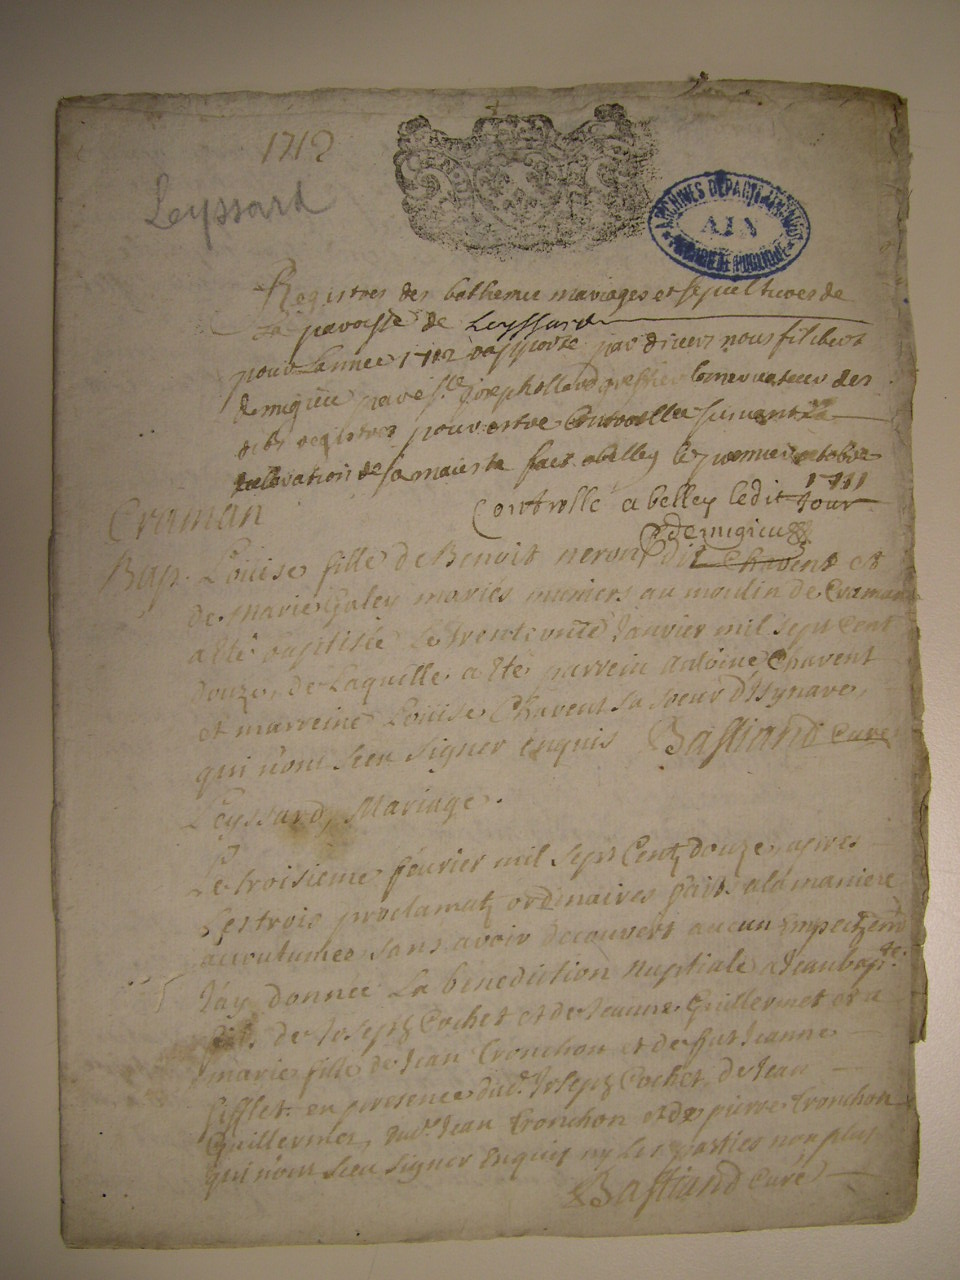 1712
Leyssard
ARCHIVES DEPARTEMENTALES
AIN
PROPRIÉTÉ PUBLIQUE
Registres des bathemes mariages et sepultures de
La paroisse de Leyssard
pour Lannee 1712 raporte par devers nous filibert
demigieu
dits registres pour estre Controlle suivant la
declaration de sa maieste fait a belley le premier octobre
1711
Controlle a belley ledit Jour
demigieu
Craman
Bap. Louise fille de Benoit neron dit Chavent et
de Marie Galey mariés muniers au moulin de Craman
a été baptisée le trente Janvier mil sept cent
douze, de Laquelle a été parrein Antoine Chavent
et marreine Louise Chavent sa soeur d'Isynave,
qui n'ont sceu signer enquis Bastiand Curé
Leyssard, Mariage.
Le troisieme février mil sept Cent douze, apres
Les trois proclamat. ordinaires faites a la maniere
accoutumée sans avoir découvert aucun
J'ay donnée La bénédiction Nuptiale a Jean bapt.te
fils de Joseph Cochet et de Jeanne Guillermet et a
marie fille de Jean Tronchon et de fut Jeanne
Sifflet. en presence dud. Joseph Cochet, de Jean
Guillermet, dud. Jean Tronchon et de pierre Tronchon
qui n'ont sceu signer Enquis ny Les parties non plus
Bastiand Curé